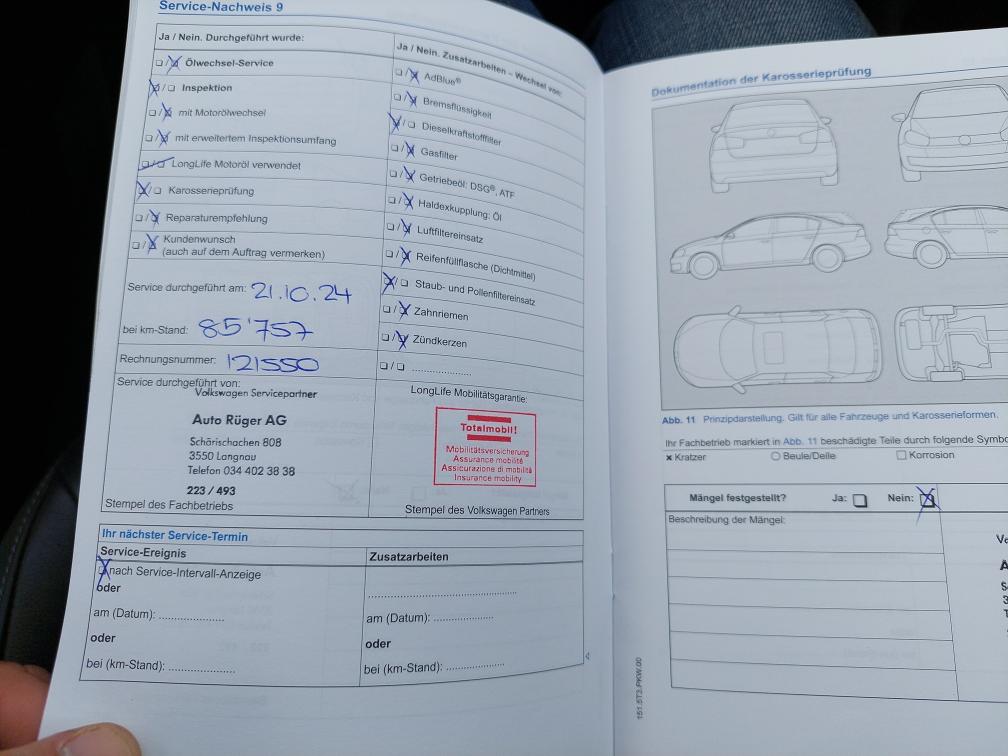 Service-Nachweis 9
Ja / Nein. Durchgeführt wurde:
☐/☒ Ölwechsel-Service
☒/☐ Inspektion
☐/☒ mit Motorölwechsel
☐/☒ mit erweitertem Inspektionsumfang
☐/☐ LongLife Motoröl verwendet
☒/☐ Karosserieprüfung
☐/☒ Reparaturempfehlung
☐/☒ Kundenwunsch
(auch auf dem Auftrag vermerken)
Service durchgeführt am: 21.10.24
bei km-Stand: 85'757
Rechnungsnummer: 121550
Service durchgeführt von:
Volkswagen Servicepartner
Auto Rüger AG
Schärischachen 808
3550 Langnau
Telefon 034 402 38 38
223 / 493
Stempel des Fachbetriebs
Ja / Nein. Zusatzarbeiten – Wechsel von:
☐/☒ AdBlue®
☐/☒ Bremsflüssigkeit
☒/☐ Dieselkraftstofffilter
☐/☒ Gasfilter
☐/☒ Getriebeöl: DSG®, ATF
☐/☒ Haldexkupplung: Öl
☐/☒ Luftfiltereinsatz
☐/☒ Reifenfüllflasche (Dichtmittel)
☒/☐ Staub- und Pollenfiltereinsatz
☐/☒ Zahnriemen
☐/☒ Zündkerzen
☐/☐ ......................
LongLife Mobilitätsgarantie:
Totalmobil!
Mobilitätsversicherung
Assurance mobilité
Assicurazione di mobilità
Insurance mobility
Stempel des Volkswagen Partners
Ihr nächster Service-Termin
Service-Ereignis
☒ nach Service-Intervall-Anzeige
oder
am (Datum): ......................
oder
bei (km-Stand): ......................
Zusatzarbeiten
..................................................
am (Datum): ....................
oder
bei (km-Stand): ...................
Dokumentation der Karosserieprüfung
Abb. 11 Prinzipdarstellung. Gilt für alle Fahrzeuge und Karosserieformen.
Ihr Fachbetrieb markiert in Abb. 11 beschädigte Teile durch folgende
× Kratzer ○ Beule/Delle ☐ Korrosion
Mängel festgestellt? Ja: ☐ Nein: ☒
Beschreibung der Mängel:
151.5T2.PKW.00